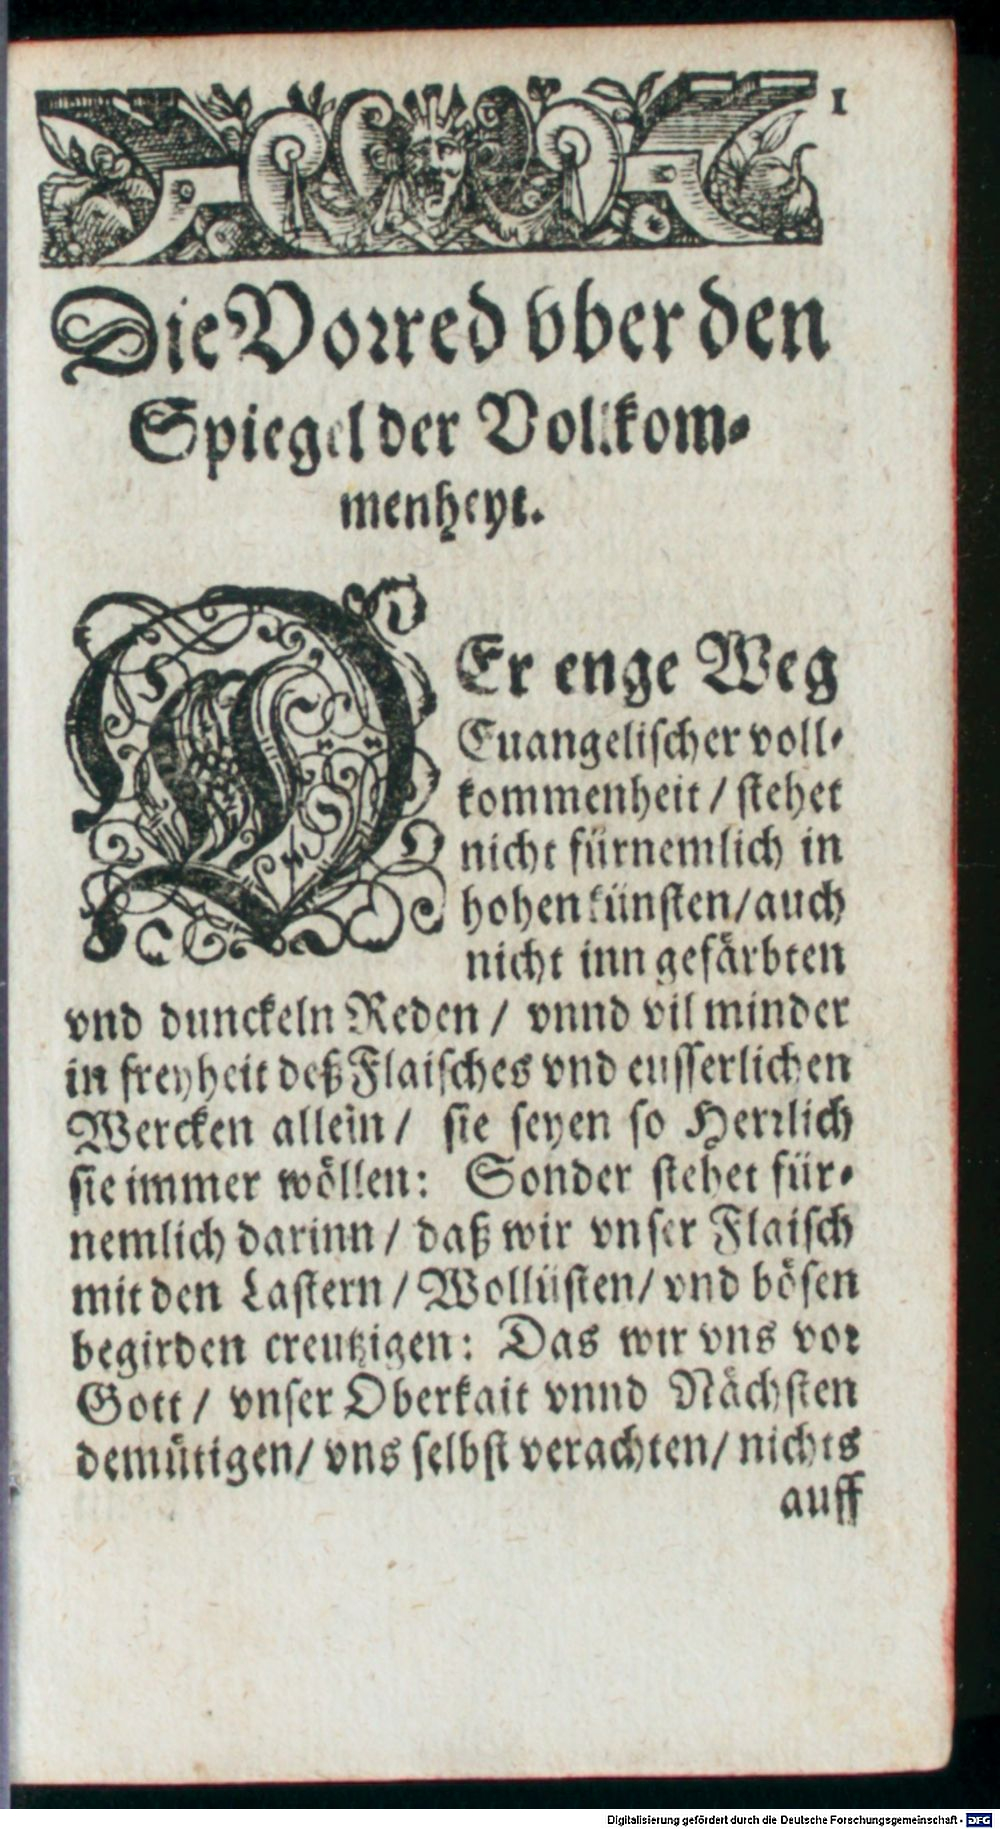 1
Die Vorred vber den
Spiegel der Vollkom-
menheyt.
DEr enge Weg
Euangelischer voll-
kommenheit / stehet
nicht fürnemlich in
hohen künsten/auch
nicht inn gefärbten
vnd dunckeln Reden / vnnd vil minder
in freyheit deß Flaisches vnd eusserlichen
Wercken allein / sie seyen so Herrlich
sie immer wöllen: Sonder stehet für-
nemlich darinn / daß wir vnser Flaisch
mit den Lastern / Wollüsten/ vnd bösen
begirden creutzigen: Das wir vns vor
Gott / vnser Oberkait vnnd Nächsten
demütigen/ vns selbst verachten/ nichts
auff
Digitalisierung gefördert durch die Deutsche Forschungsgemeinschaft - DFG